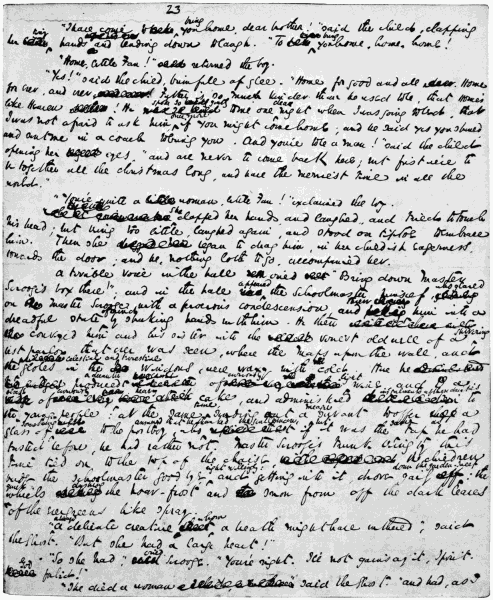 23
"I have come to bring you home, dear brother!" said the child, clapping
her tiny hands and bending down to laugh. "To bring you home, home, home!"
"Home, little Fan!" returned the boy.
"Yes!" said the child, brimful of glee. "Home for good and all. Home
for ever, and ever. Father is so much kinder than he used to be, that Home's
like Heaven! He spoke so gently to me one dear night when I was going to bed, that
I was not afraid to ask him once more if you might come home; and he said yes you should
and sent me in a coach to bring you. And you're to be a man!" said the child
opening her eyes, "and are never to come back here; but first we're to
be together all the Christmas long, and have the merriest time in all the
world."
"You're quite a woman, little Fan!" exclaimed the boy.
She clapped her hands and laughed, and tried to touch
his head; but being too little, laughed again, and stood on tiptoe to embrace
him. Then she began to drag him, in her childish eagerness,
towards the door; and he, nothing loth to go, accompanied her.
A terrible voice in the hall cried "Bring down Master
Scrooge's box, there!", and in the hall appeared the Schoolmaster himself, who glared
on Master Scrooge with a ferocious condescension, and threw him into a
dreadful state of mind by shaking hands with him. He then
conveyed him and his sister into the veriest old well of a shivering
best parlor that ever was seen, where the maps upon the wall, and
the globes in the windows, were waxy with cold. Here he
produced a decanter of curiously light wine, and a
block of curiously heavy cake, and administered to
the young people: at the same time sending out a meagre servant to offer a
glass of something to the postboy, who answered that he thanked the gentleman, but if it was the same tap he had
tasted before, he had rather not. Master Scrooge's trunk being by this
time tied on to the top of the chaise, the children
bade the schoolmaster good bye right willingly; and getting into it, drove gaily down the garden sweep: the
quick wheels dashing the hoar-frost and snow from off the dark leaves
of the evergreens like spray.
"Always a delicate creature, whom a breath might have withered", said
the Ghost. "But she had a large heart!"
"So she had", cried Scrooge. "You're right. I'll not gainsay it, Spirit.
God forbid!"
"She died a woman", said the Ghost, "and had, as I